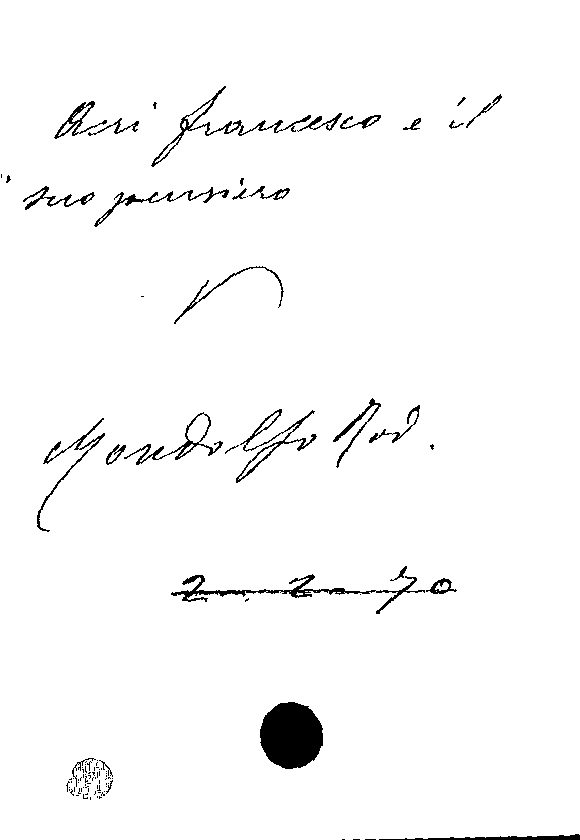 Acri Francesco e il
suo pensiero
V
Mondolfo Rod.
2. 2. 70